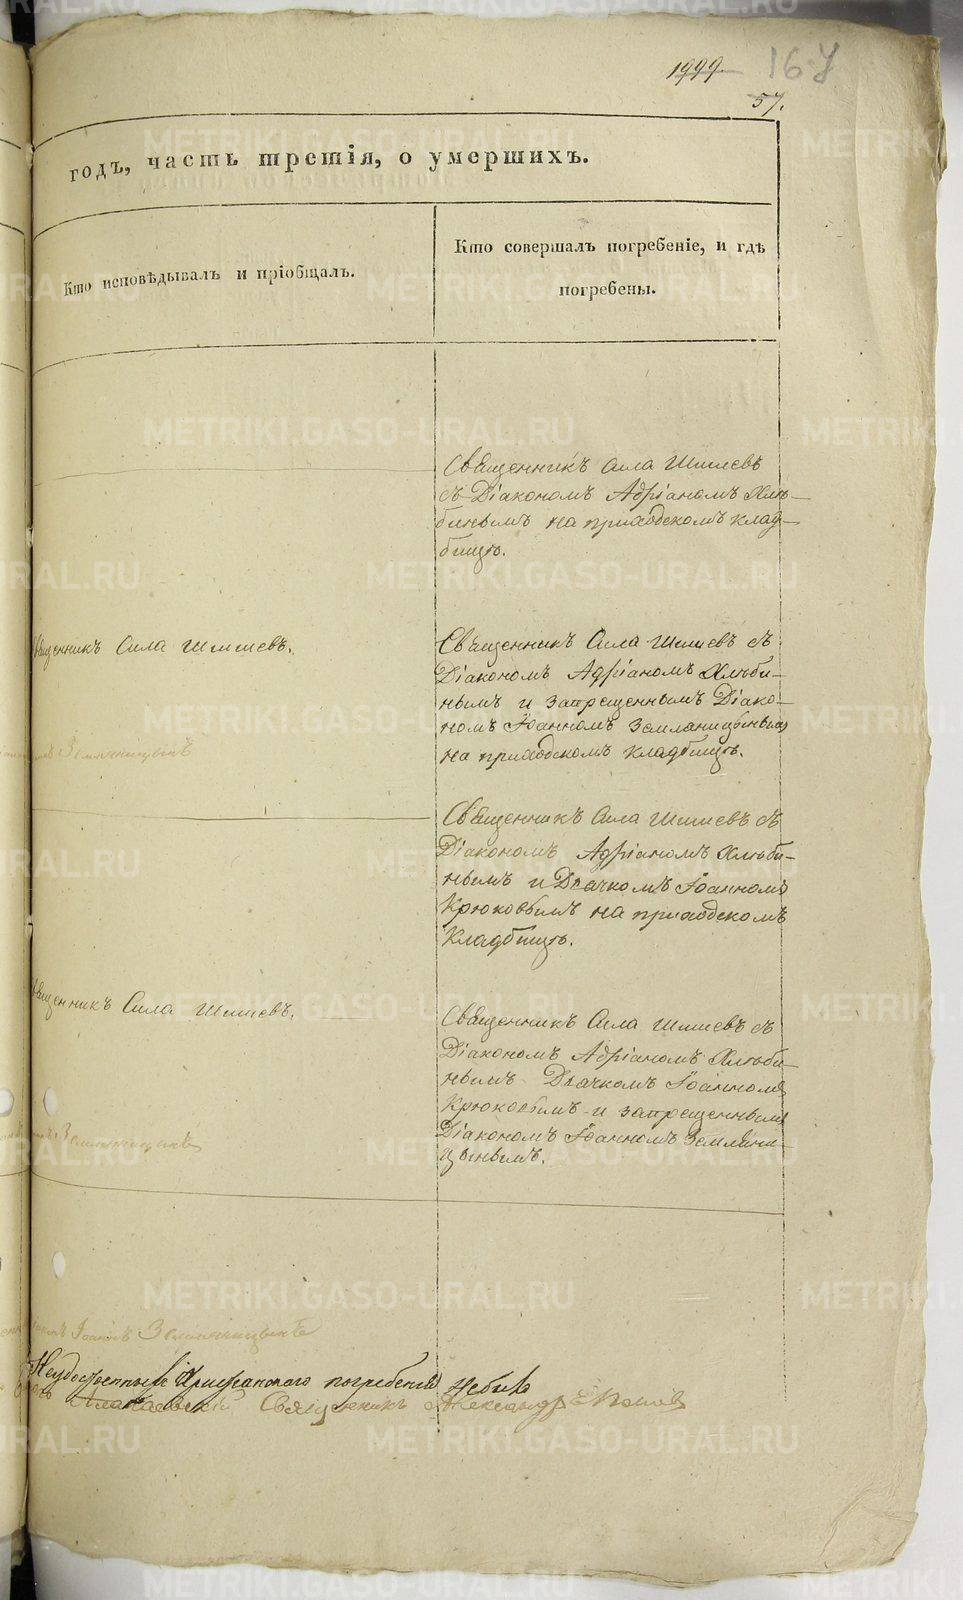 1999. 167
57.
годъ, часть третія, о умершихъ.
Кто исповѣдывалъ и пріобщалъ.
Кто совершалъ погребеніе, и гдѣ
погребены.
Священникъ Сила Шишевъ
съ Діакономъ Адріаномъ Хлѣ-
бинымъ на приходскомъ клад-
бищѣ.
Священникъ Сила Шишевъ.
Священникъ Сила Шишевъ съ
Діакономъ Адріаномъ Хлѣби-
нымъ и запрещеннымъ Діако-
номъ Іоанномъ Земляницынымъ
на приходскомъ кладбищѣ.
Земляницынъ
Священникъ Сила Шишевъ съ
Діакономъ Адріаномъ Хлѣби-
нымъ и Дьячкомъ Іоанномъ
Крюковымъ на приходскомъ
кладбищѣ.
Священникъ Сила Шишевъ.
Священникъ Сила Шишевъ съ
Діакономъ Адріаномъ Хлѣби-
нымъ Дьячкомъ Іоанномъ
Крюковымъ и запрещеннымъ
Діакономъ Іоанномъ Земляни-
цынымъ.
Земляницынъ
Іоаннъ Земляницынъ
Неудостоенныхъ Христіанскаго погребенія небыло
Алапаевскій Священникъ Александръ Поповъ
METRIKI.GASO-URAL.RU